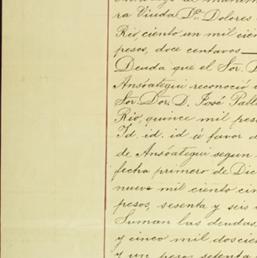 ra Viuda Da. Dolores
Rio, ciento un mil cien
pesos, doce centavos
Deuda que el Sor. D
Ansóategui reconoció
Sor. Dor. D. José Pall
Rio, quince mil pes
Id. id. id á favor d
de Ansóategui segun
fecha primero de Dic
nueve mil ciento cin
pesos, sesenta y seis
Suman las deudas,
y cinco mil doscien
y un pesos setenta